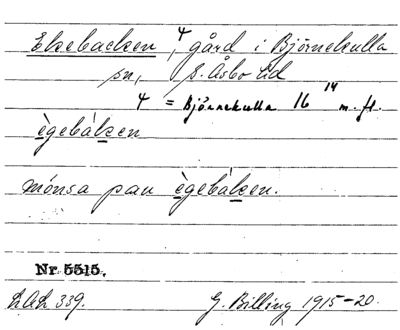 Ekebacken, 4 gård i Björnekulla
sn, S. Åsbo hd
4 = Björnekulla 16 14 m. fl.
ègebáken
mónsa pau ègebáken.
Nr 5515.
LAL 339. G. Billing 1915-20.